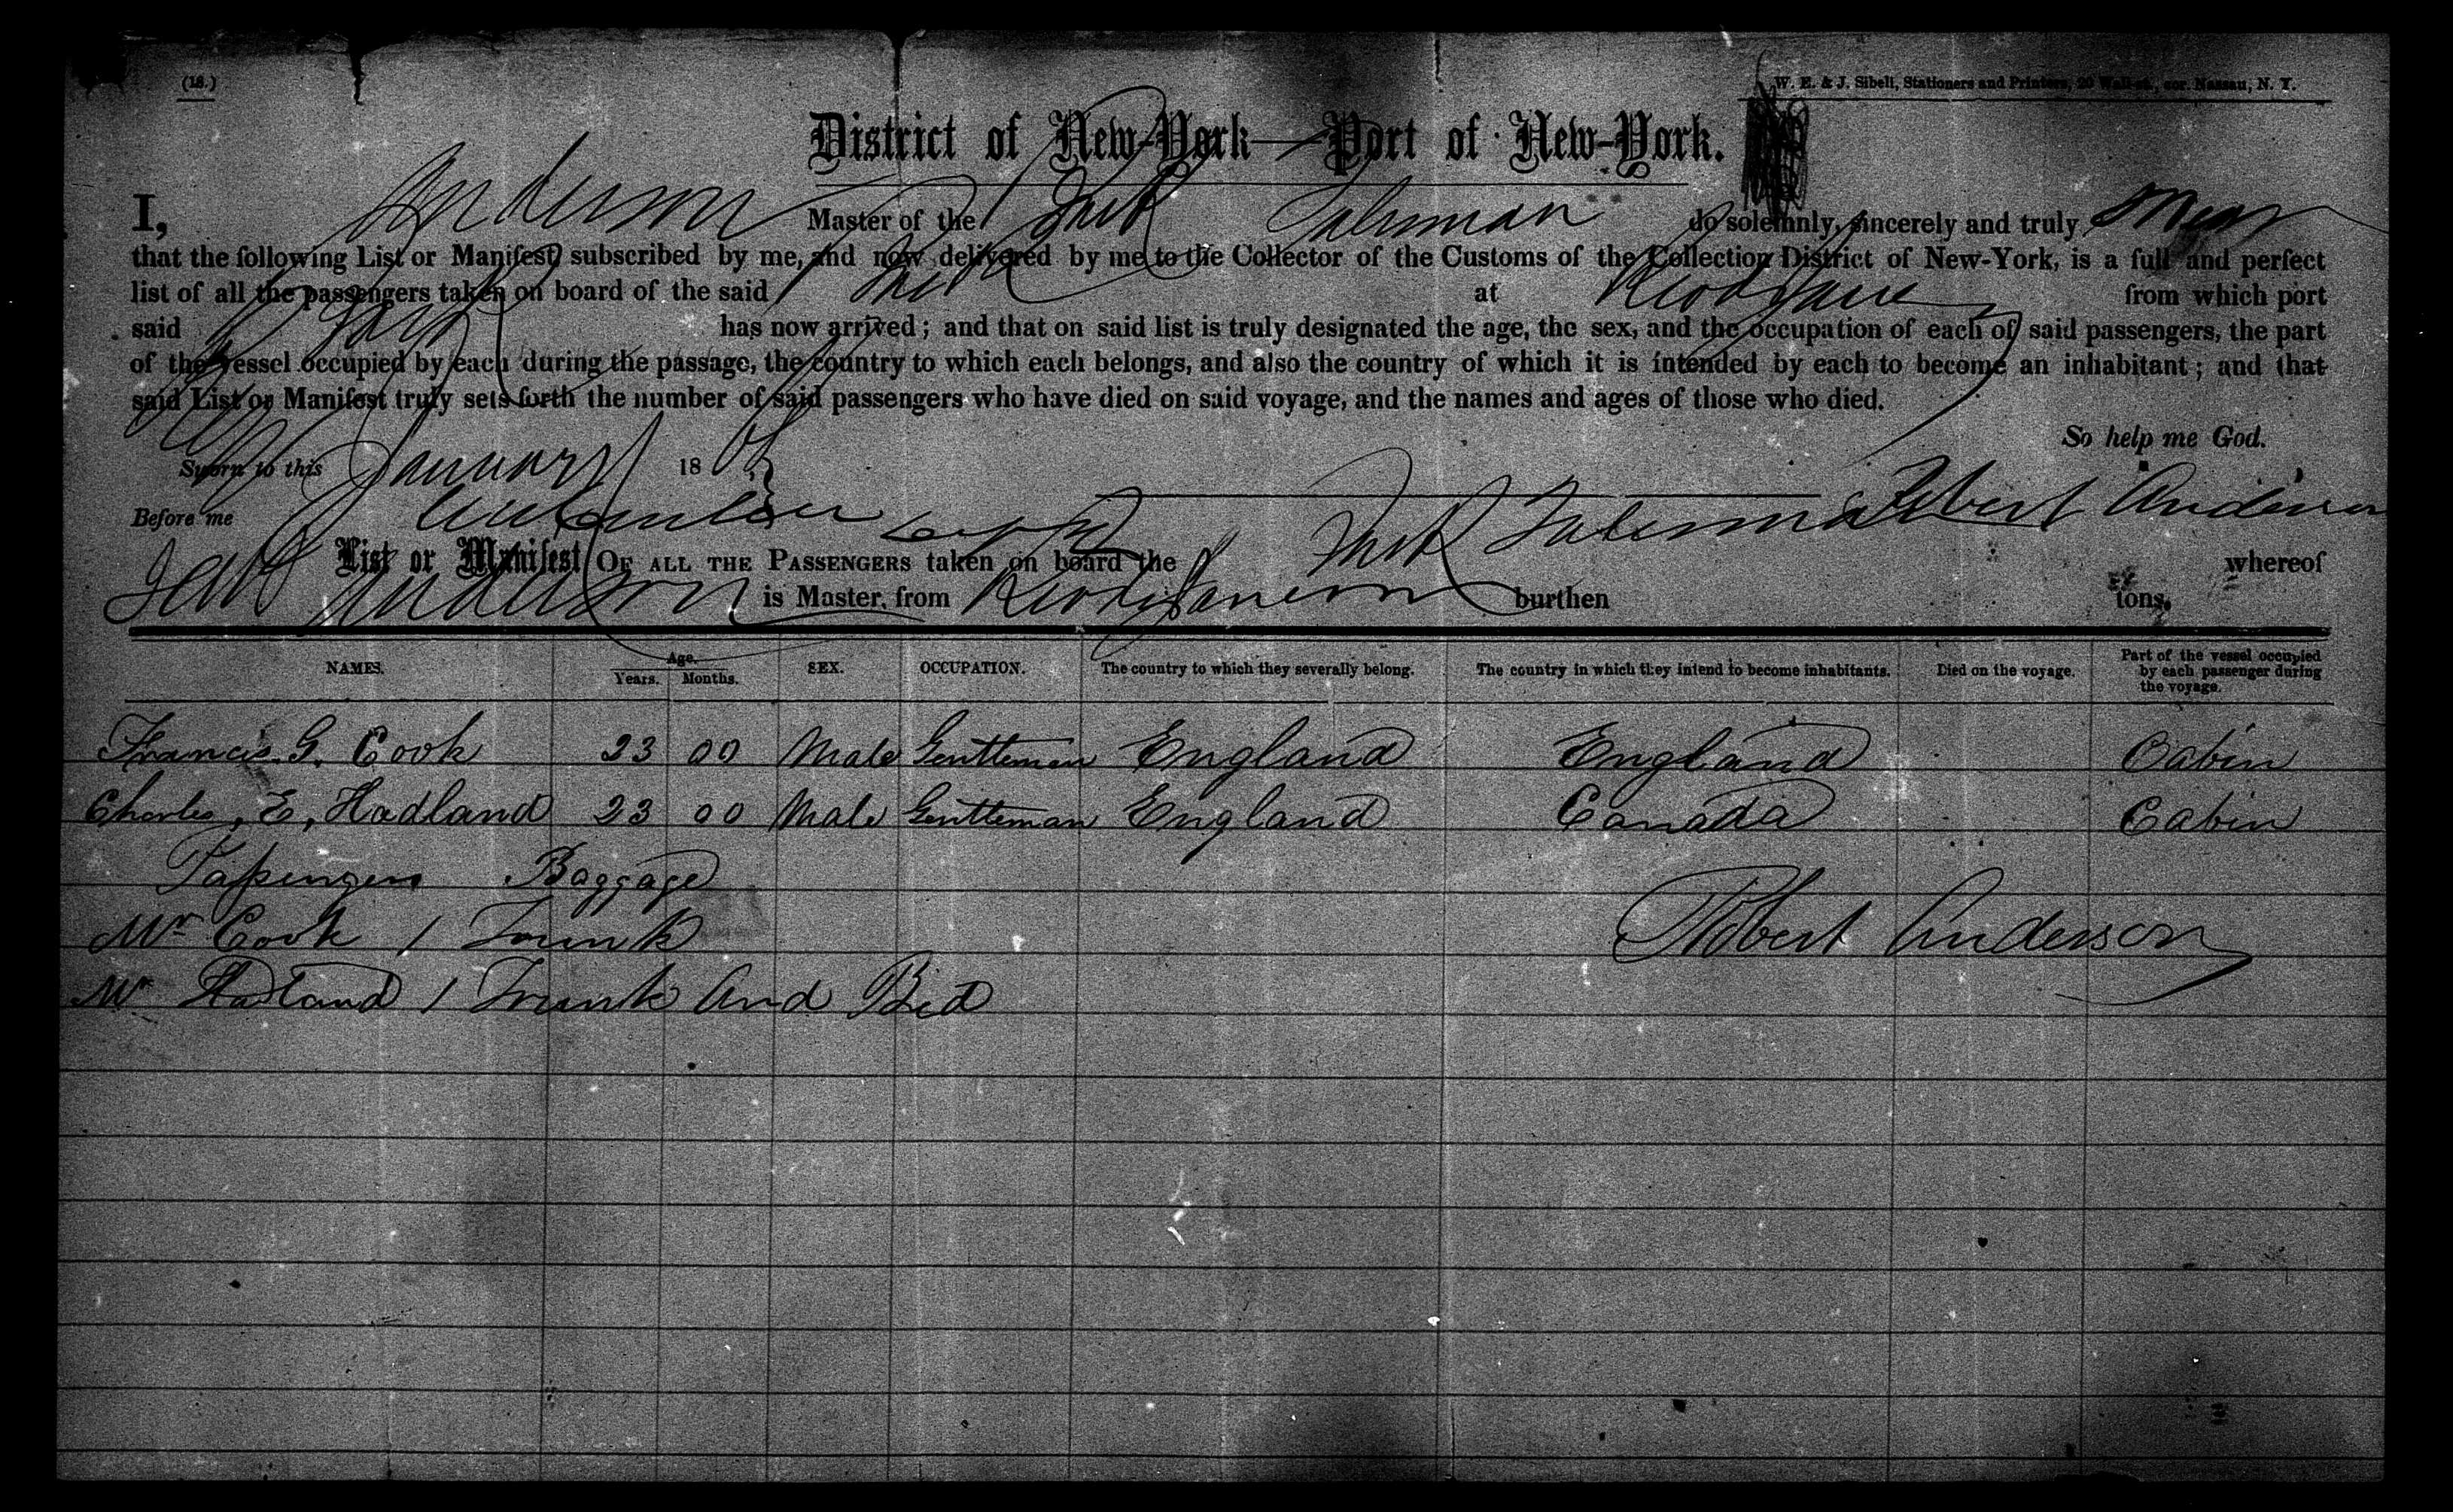 (18.)
W. E. & J. Sibell, Stationers and Printers, 20 Wall-st., cor. Nassau, N. Y.
District of New-York—Port of New-York.
I, Anderson Master of the Talisman do solemnly, sincerely and truly swear
that the following List or Manifest, subscribed by me, and now delivered by me to the Collector of the Customs of the Collection District of New-York, is a full and perfect
list of all the passengers taken on board of the said at from which port
said has now arrived; and that on said list is truly designated the age, the sex, and the occupation of each of said passengers, the part
of the vessel occupied by each during the passage, the country to which each belongs, and also the country of which it is intended by each to become an inhabitant; and that
said List or Manifest truly sets forth the number of said passengers who have died on said voyage, and the names and ages of those who died.
So help me God.
Sworn to this January 18
Before me Robert Anderson
List or Manifest OF ALL THE PASSENGERS taken on board the Talisman whereof
Anderson is Master, from burthen tons.
NAMES. Age. Years. Months. SEX. OCCUPATION. The country to which they severally belong. The country in which they intend to become inhabitants. Died on the voyage. Part of the vessel occupied by each passenger during the voyage.
Francis. G. Cook 23 00 Male Gentleman England England Cabin
Charles, E, Hadland 23 00 Male Gentleman England Canada Cabin
Passengers Baggage
Mr Cook 1 Trunk Robert Anderson
Mr Hadland 1 Trunk And Bed